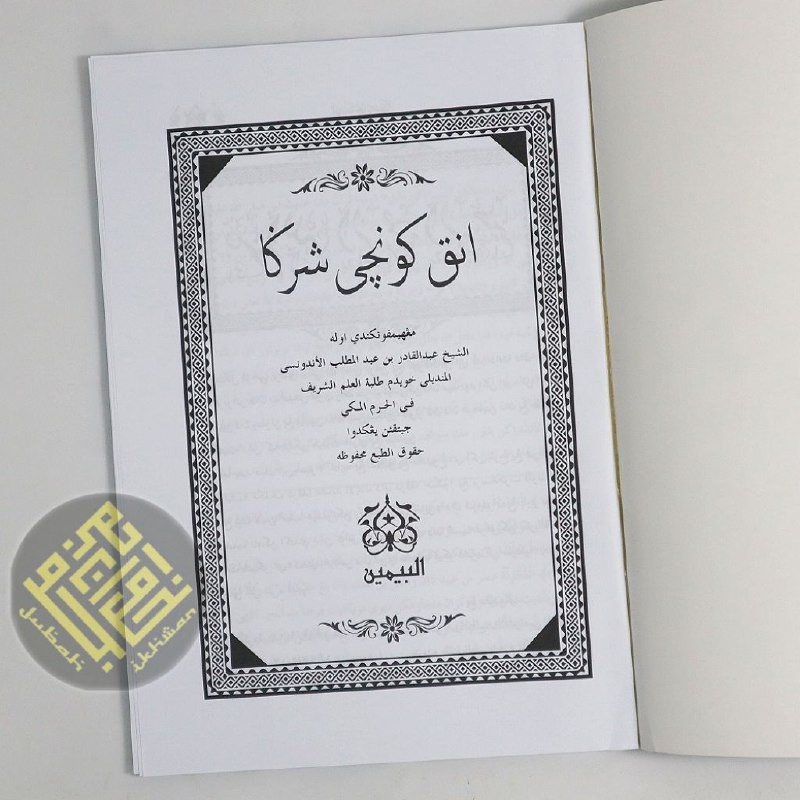 انق كونچي شركا
مڠهيمفونكندي اوله
الشيخ عبدالقادر بن عبد المطلب الأندونسي
المنديلي خويدم طلبة العلم الشريف
في الحرم المكي
چيتقن يڠكدوا
حقوق الطبع محفوظه
البيمين
Jubah
ikhwan